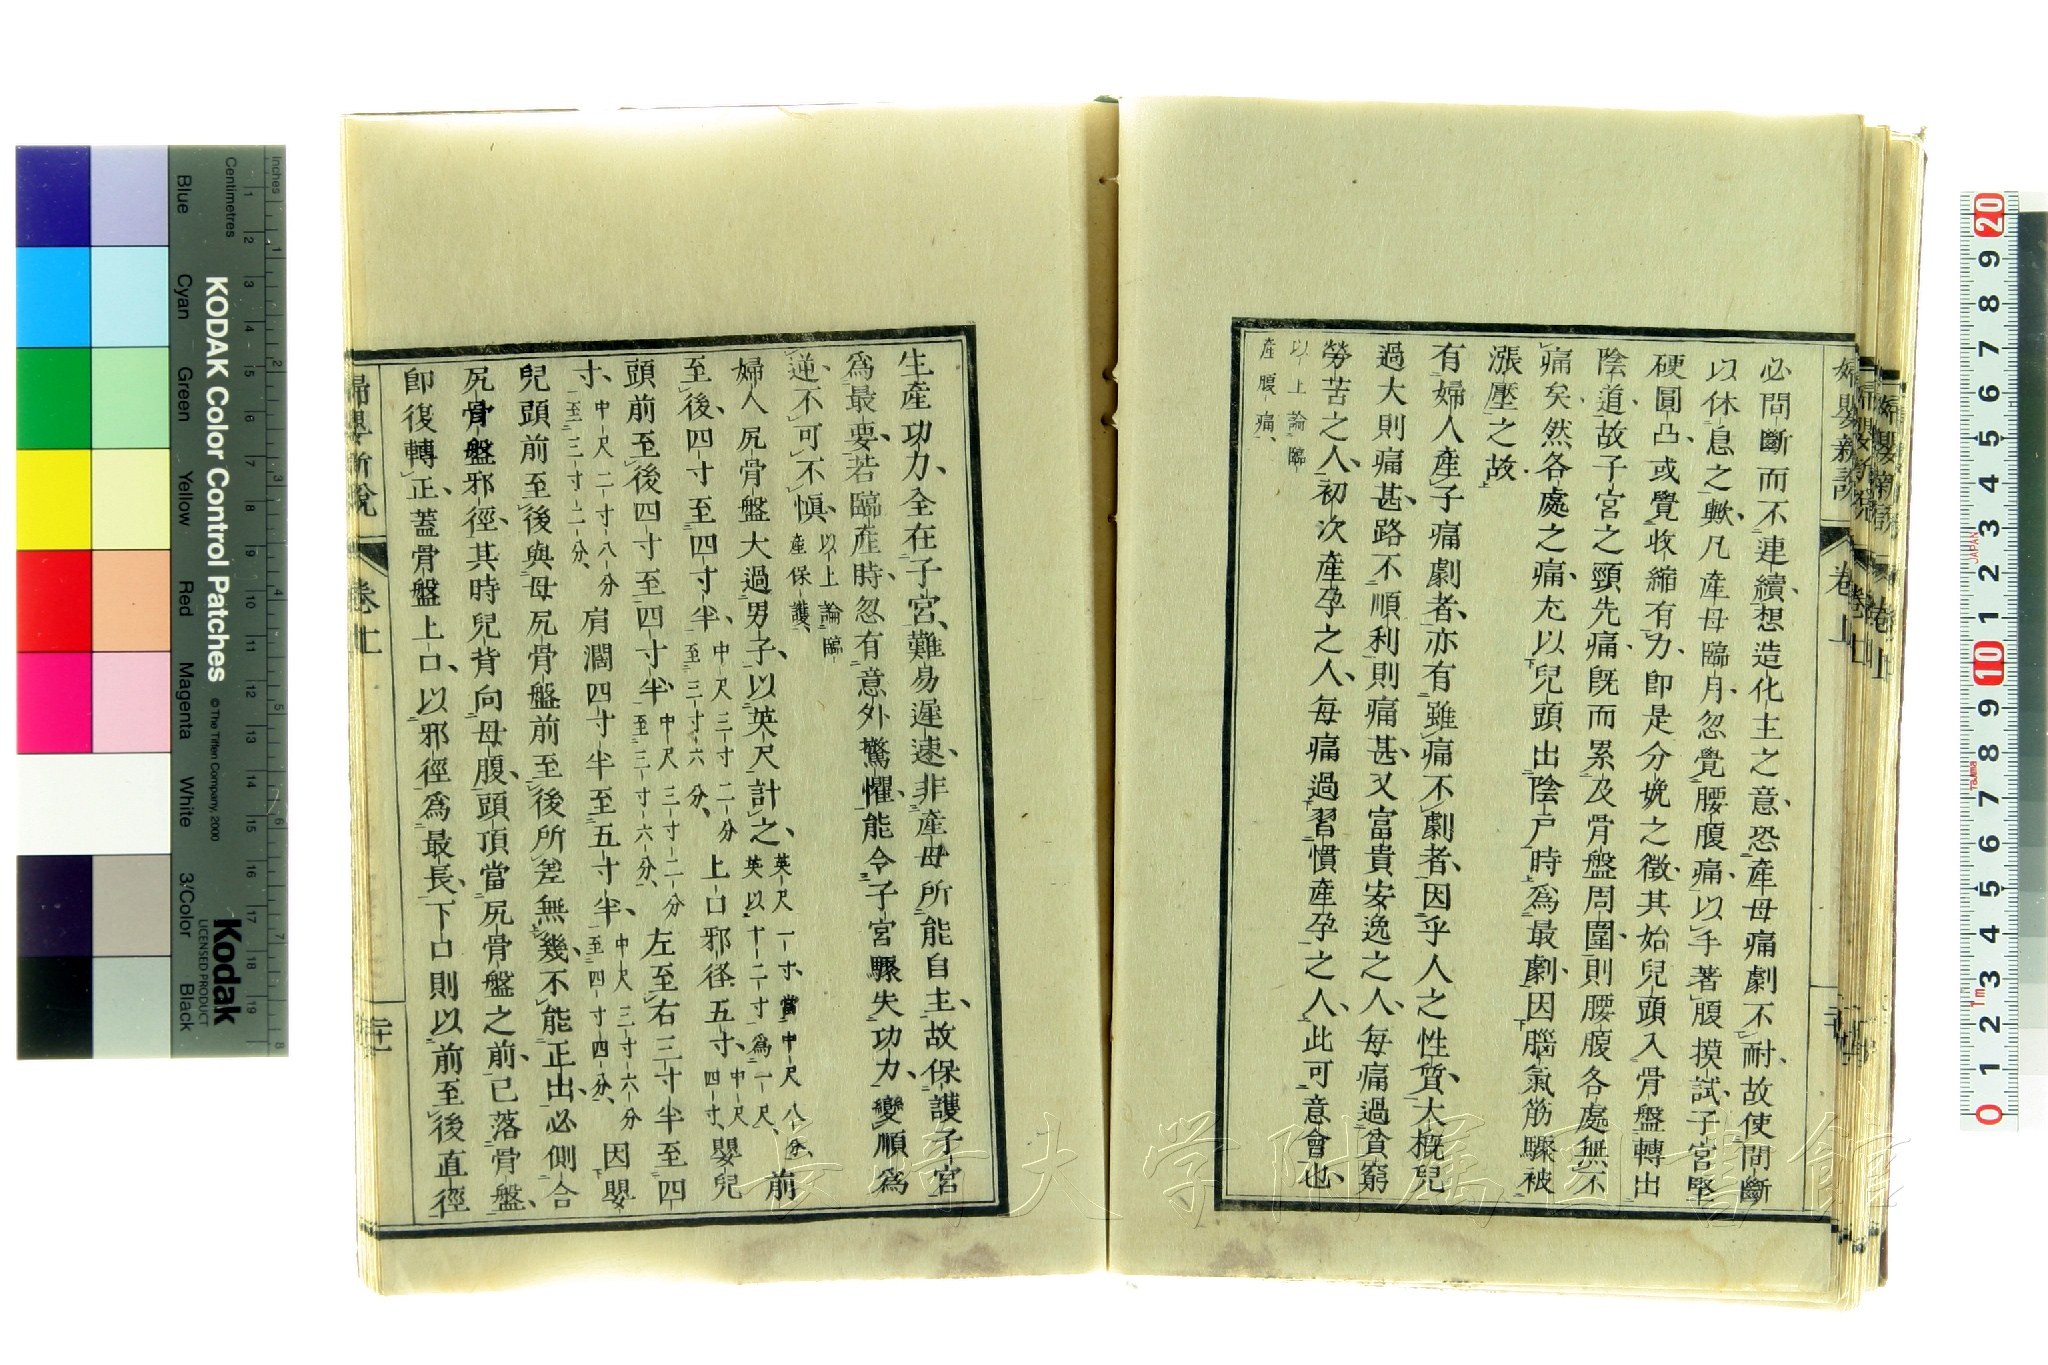 必間斷而不連續、想造化主之意、恐產母痛劇不耐、故使間斷
以休息之歟、凡產母臨月、忽覺腰腹痛、以手著腹摸試、子宮堅
硬圓凸、或覺收縮有力、即是分娩之徵、其始兒頭入骨盤轉出
陰道、故子宮之頸先痛、既而累及骨盤周圍、則腰腹各處無不
痛矣、然各處之痛、尤以兒頭出陰戶時為最劇、因腦氣筋驟被
漲壓之故
有婦人產子痛劇者、亦有雖痛不劇者、因乎人之性質、大概兒
過大則痛甚、路不順利則痛甚、又富貴安逸之人、每痛過貧窮
勞苦之人、初次產孕之人、每痛過習慣產孕之人、此可意會也、
以上論臨
產腹痛、
婦嬰新說
卷上
生產功力、全在子宮、難易遲速、非產母所能自主、故保護子宮
為最要、若臨產時、忽有意外驚懼、能令子宮驟失功力、變順為
逆、不可不慎、以上論臨
產保護、
婦人尻骨盤大過男子、以英尺計之、英尺一寸、當中尺八分、
英以十二寸為一尺、前
至後、四寸至四寸半、中尺三寸二分
至三寸六分、上口邪徑、五寸、中尺
四寸、嬰兒
頭前至後四寸至四寸半、中尺三寸二分
至三寸六分、左至右三寸半至四
寸、中尺二寸八分
至三寸二分、肩濶四寸半至五寸半、中尺三寸六分
至四寸四分、因嬰
兒頭前至後與母尻骨盤前至後所差無幾、不能正出、必側合
尻骨盤邪徑、其時兒背向母腹、頭頂當尻骨盤之前、已落骨盤、
即復轉正、蓋骨盤上口、以邪徑為最長、下口則以前至後直徑
婦嬰新說
卷上
二十一
KODAK Color Control Patches
© The Tiffen Company, 2000
Kodak
LICENSED PRODUCT
Inches
Centimetres
Blue
Cyan
Green
Yellow
Red
Magenta
White
3/Color
Black
長崎大学附属図書館